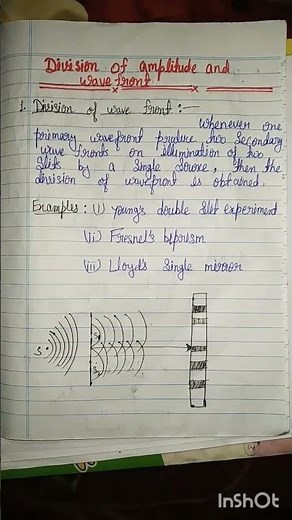 Division of amplitude and
wave front
1. Division of wave front :—
Whenever one
primary wavefront produce two Secondary
wave fronts on illumination of two
Slits by a Single Source, then the
division of wavefront is obtained.
Examples : (i) Young's double Slit experiment
(ii) Fresnel's biprism
(iii) Lloyd's Single mirror
S
S₁
S₂
InShOt